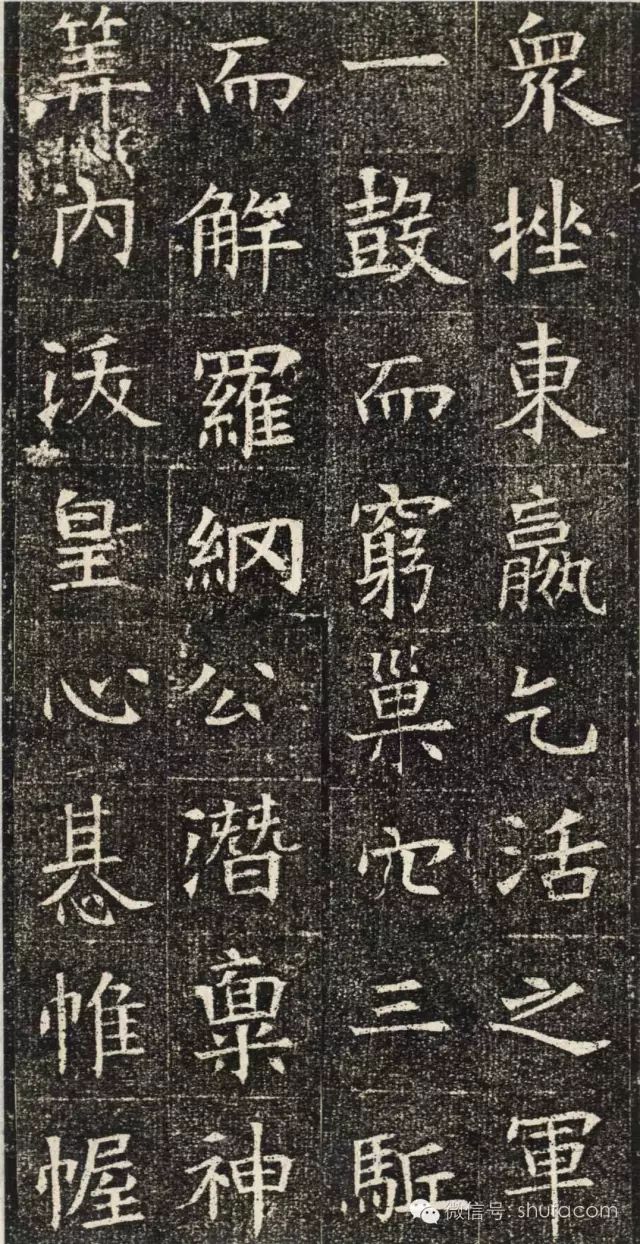 眾挫東嬴乞活之軍
一鼓而窮巢穴三駈
而解羅網公潛稟神
筭內沃皇心惎帷幄
微信号: shufacom